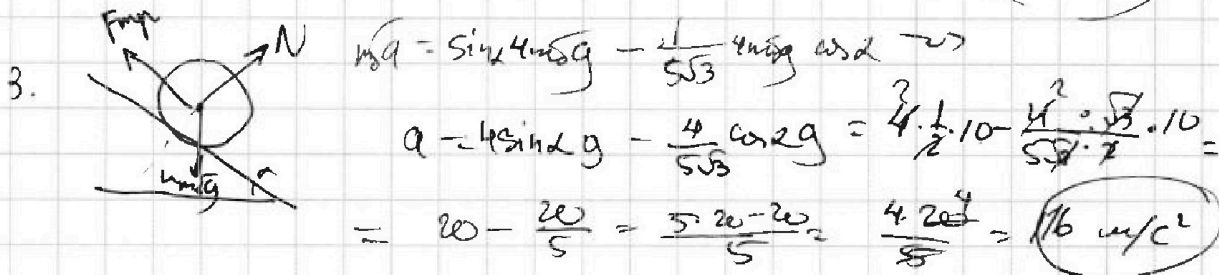 3.
Fтр N
ma = sinα 4mg - 1/(5√3) 4mg cosα ~>
a = 4sinα g - 4/(5√3) cosα g = 4 · 1/2 · 10 - (4 · √3)/(5√3 · 2) · 10 =
= 20 - 20/5 = (5·20-20)/5 = (4·20)/5 = 16 м/с²